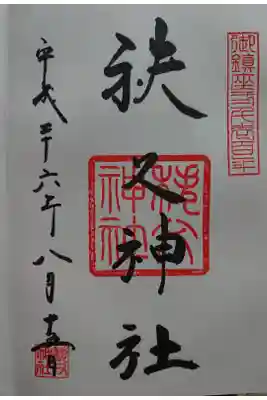 御鎮座弐千壱百年
秩父神社
秩父神社
平成二十六年八月十五日